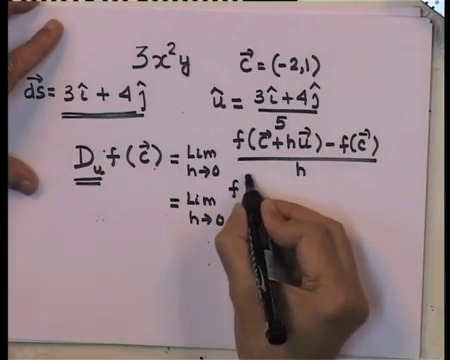 3x²y c⃗ = (-2,1)
d⃗s = 3î + 4ĵ û = (3î + 4ĵ)/5
D_u f(c⃗) = Lim h→0 (f(c⃗ + hu⃗) - f(c⃗))/h
= Lim h→0 f